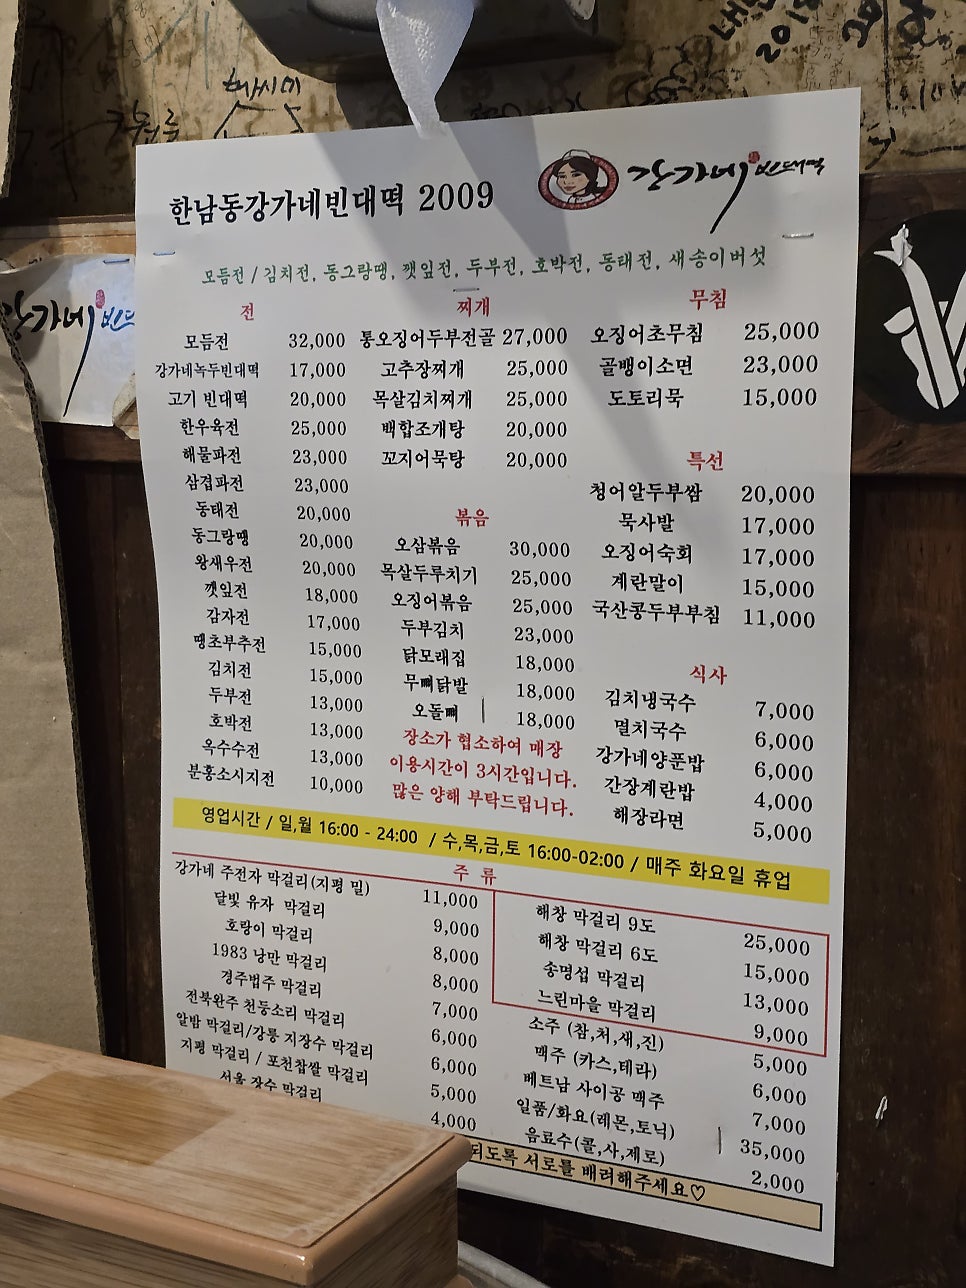 해시미
한남동강가네빈대떡 2009
강가네 빈대떡
모듬전 / 김치전, 동그랑땡, 깻잎전, 두부전, 호박전, 동태전, 새송이버섯
전
모듬전 32,000
강가네녹두빈대떡 17,000
고기 빈대떡 20,000
한우육전 25,000
해물파전 23,000
삼겹파전 23,000
동태전 20,000
동그랑땡 20,000
왕새우전 20,000
깻잎전 18,000
감자전 17,000
땡초부추전 15,000
김치전 15,000
두부전 13,000
호박전 13,000
옥수수전 13,000
분홍소시지전 10,000
찌개
통오징어두부전골 27,000
고추장찌개 25,000
목살김치찌개 25,000
백합조개탕 20,000
꼬지어묵탕 20,000
볶음
오삼볶음 30,000
목살두루치기 25,000
오징어볶음 25,000
두부김치 23,000
닭모래집 18,000
무뼈닭발 18,000
오돌뼈 18,000
장소가 협소하여 매장
이용시간이 3시간입니다.
많은 양해 부탁드립니다.
무침
오징어초무침 25,000
골뱅이소면 23,000
도토리묵 15,000
특선
청어알두부쌈 20,000
묵사발 17,000
오징어숙회 17,000
계란말이 15,000
국산콩두부부침 11,000
식사
김치냉국수 7,000
멸치국수 6,000
강가네양푼밥 6,000
간장계란밥 4,000
해장라면 5,000
영업시간 / 일,월 16:00 - 24:00 / 수,목,금,토 16:00-02:00 / 매주 화요일 휴업
주 류
강가네 주전자 막걸리(지평 밀) 11,000
달빛 유자 막걸리 9,000
호랑이 막걸리 8,000
1983 낭만 막걸리 8,000
경주법주 막걸리 7,000
전북완주 천둥소리 막걸리 6,000
알밤 막걸리/강릉 지장수 막걸리 6,000
지평 막걸리 / 포천찹쌀 막걸리 5,000
서울 장수 막걸리 4,000
해창 막걸리 9도 25,000
해창 막걸리 6도 15,000
송명섭 막걸리 13,000
느린마을 막걸리 9,000
소주 (참,처,새,진) 5,000
맥주 (카스,테라) 6,000
베트남 사이공 맥주 7,000
일품/화요(레몬,토닉) 35,000
음료수(콜,사,제로) 2,000
되도록 서로를 배려해주세요♡
강가네 빈대